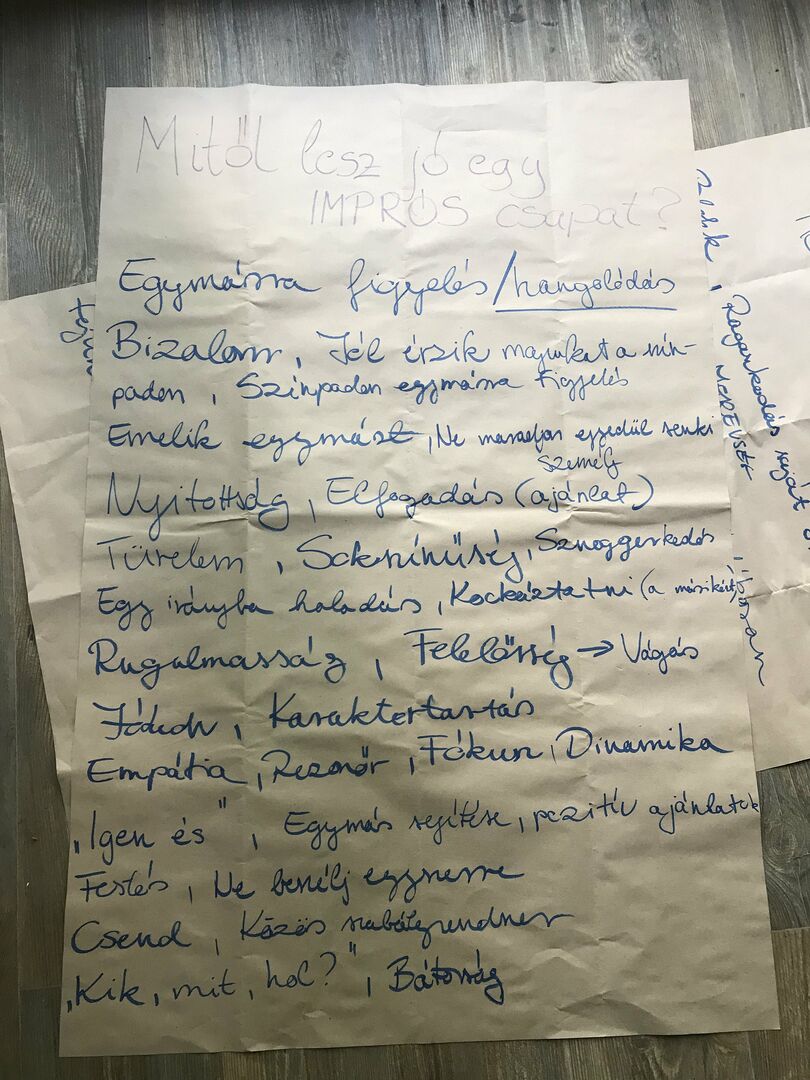 Mitől lesz jó egy
IMPRÓS csapat?
Egymásra figyelés/hangolódás
Bizalom, Jól érzik magukat a szín-
padon, Színpadon egymásra figyelés
Emelik egymást, Ne maradjon egyedül senki
személy
Nyitottság, Elfogadás (ajánlat)
Türelem, Sokszínűség,
Egy irányba haladás, Kockáztatni (a másikért)
Rugalmasság, Felelősség → Vágás
Karaktertartás
Empátia, Rezonőr, Fókusz, Dinamika
„Igen és", Egymás segítése, pozitív ajánlatok
Festés, Ne beszélj egyszerre
Csend, Közös szabályrendszer
„Kik, mit, hol?", Bátorság
MEREVSÉG